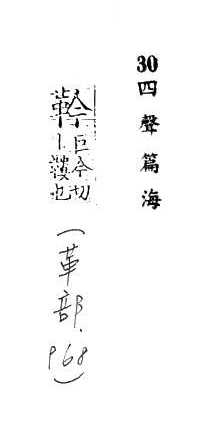 30 四聲篇海
靲
巨今切
丨鞻也
(革部.P68)